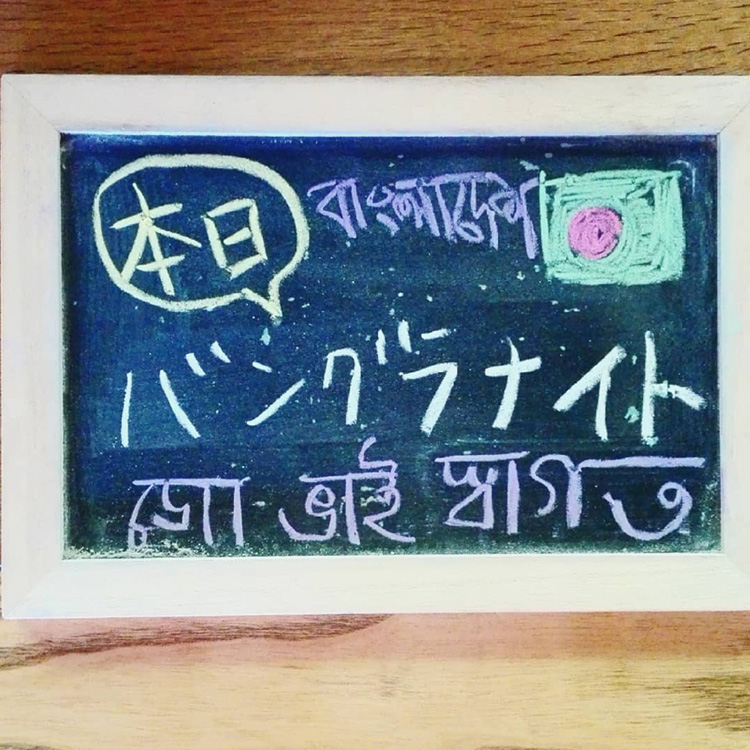 本日 বাংলাদেশ
バングラナイト
ভাই স্বাগত